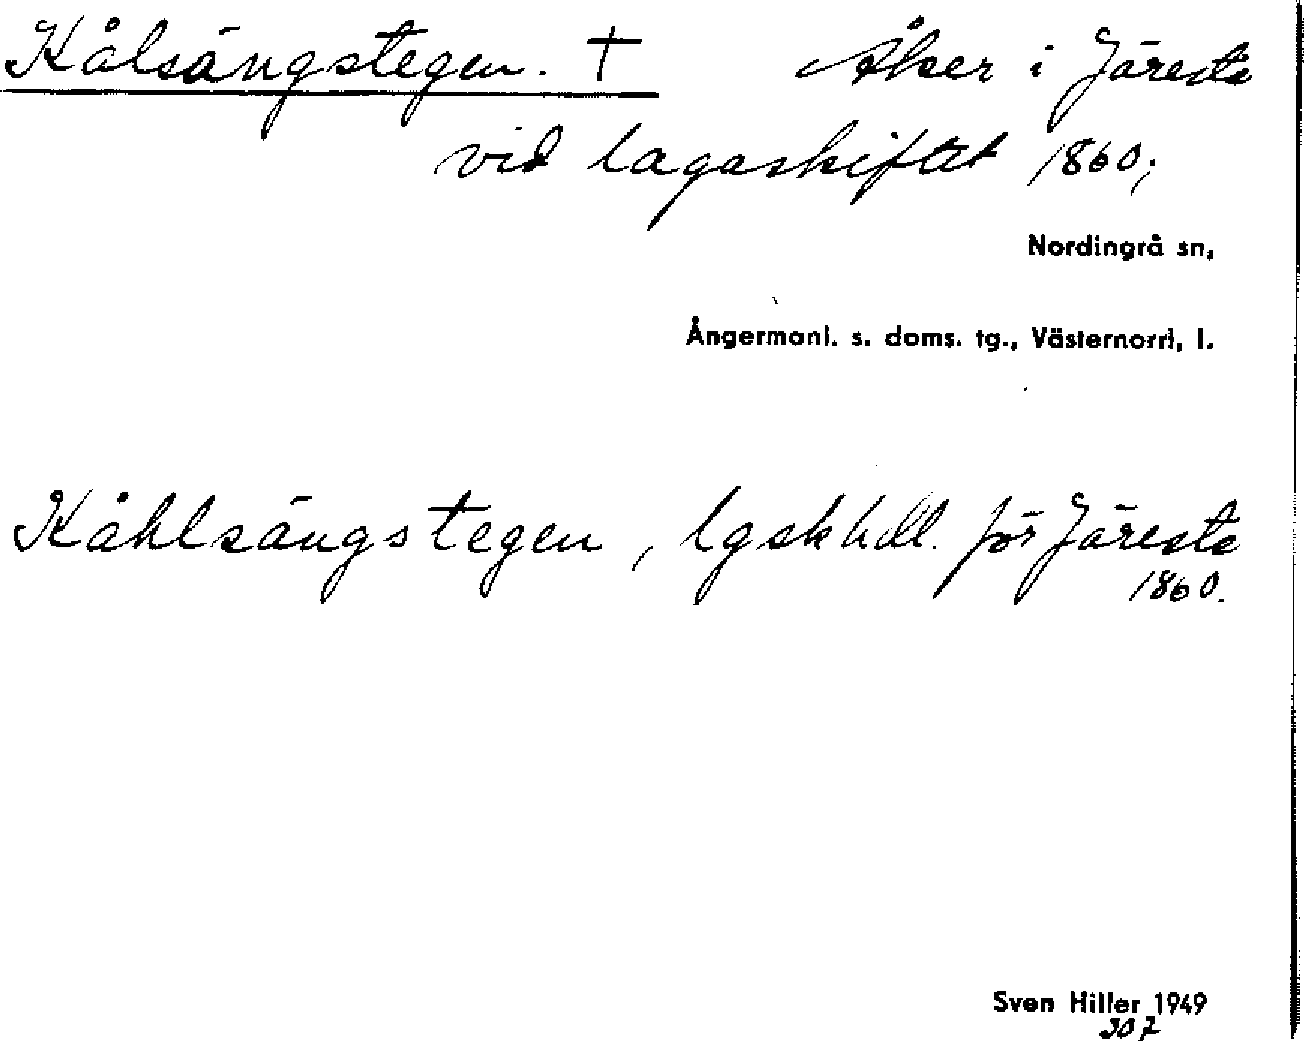 Kålsängstegen. † Åker i Järesta
vid lagaskiftet 1860;
Nordingrå sn,
Ångermanl. s. doms. tg., Västernorrl, l.
Kåhlsängstegen, lgskhdl. för Järesta
1860.
Sven Hiller 1949
307